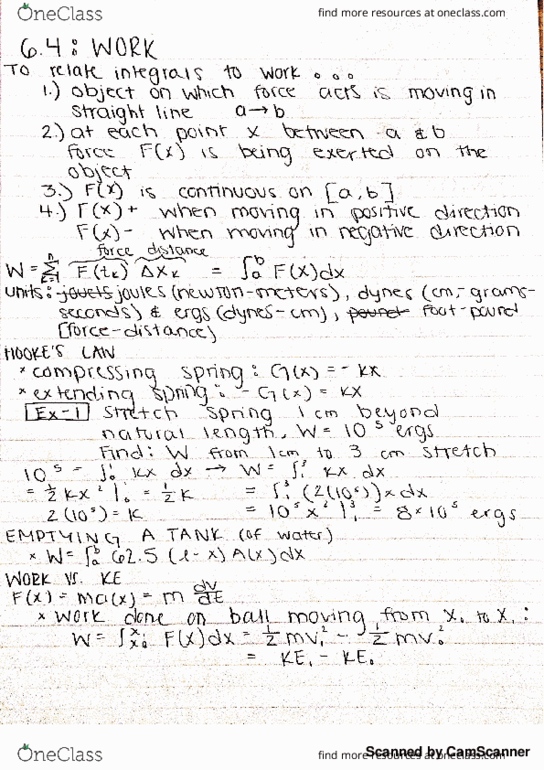 OneClass
find more resources at oneclass.com
6.4: WORK
TO relate integrals to work...
1.) object on which force acts is moving in
straight line a→b
2.) at each point x between a & b
force F(x) is being exerted on the
object
3.) F(x) is continuous on [a,b]
4.) F(x)+ when moving in positive direction
F(x)- when moving in negative direction
force distance
W = Σ F(tₖ) Δxₖ = ∫ₐᵇ F(x)dx
units: joules (newton-meters), dynes (cm-grams-
seconds) & ergs (dynes-cm), foot-pound
[force-distance]
HOOKE'S LAW
* compressing spring: G(x) = -kx
* extending spring: -G(x) = kx
Ex-1 stretch spring 1cm beyond
natural length, W = 10⁵ ergs
Find: W from 1cm to 3 cm stretch
10⁵ = ∫₀¹ kx dx → W = ∫₁³ kx dx
= ½kx²|₀¹ = ½k = ∫₁³ (2(10⁵))x dx
2(10⁵) = k = 10⁵x²|₁³ = 8×10⁵ ergs
EMPTYING A TANK (of water)
* W = ∫ₐᵇ 62.5 (l-x) A(x)dx
WORK VS. KE
F(x) = ma(x) = m dv/dt
* work done on ball moving from x₀ to x₁:
W = ∫ₓ₀ˣ¹ F(x)dx = ½mv₁² - ½mv₀²
= KE₁ - KE₀
OneClass
find more resources at oneclass.com
Scanned by CamScanner